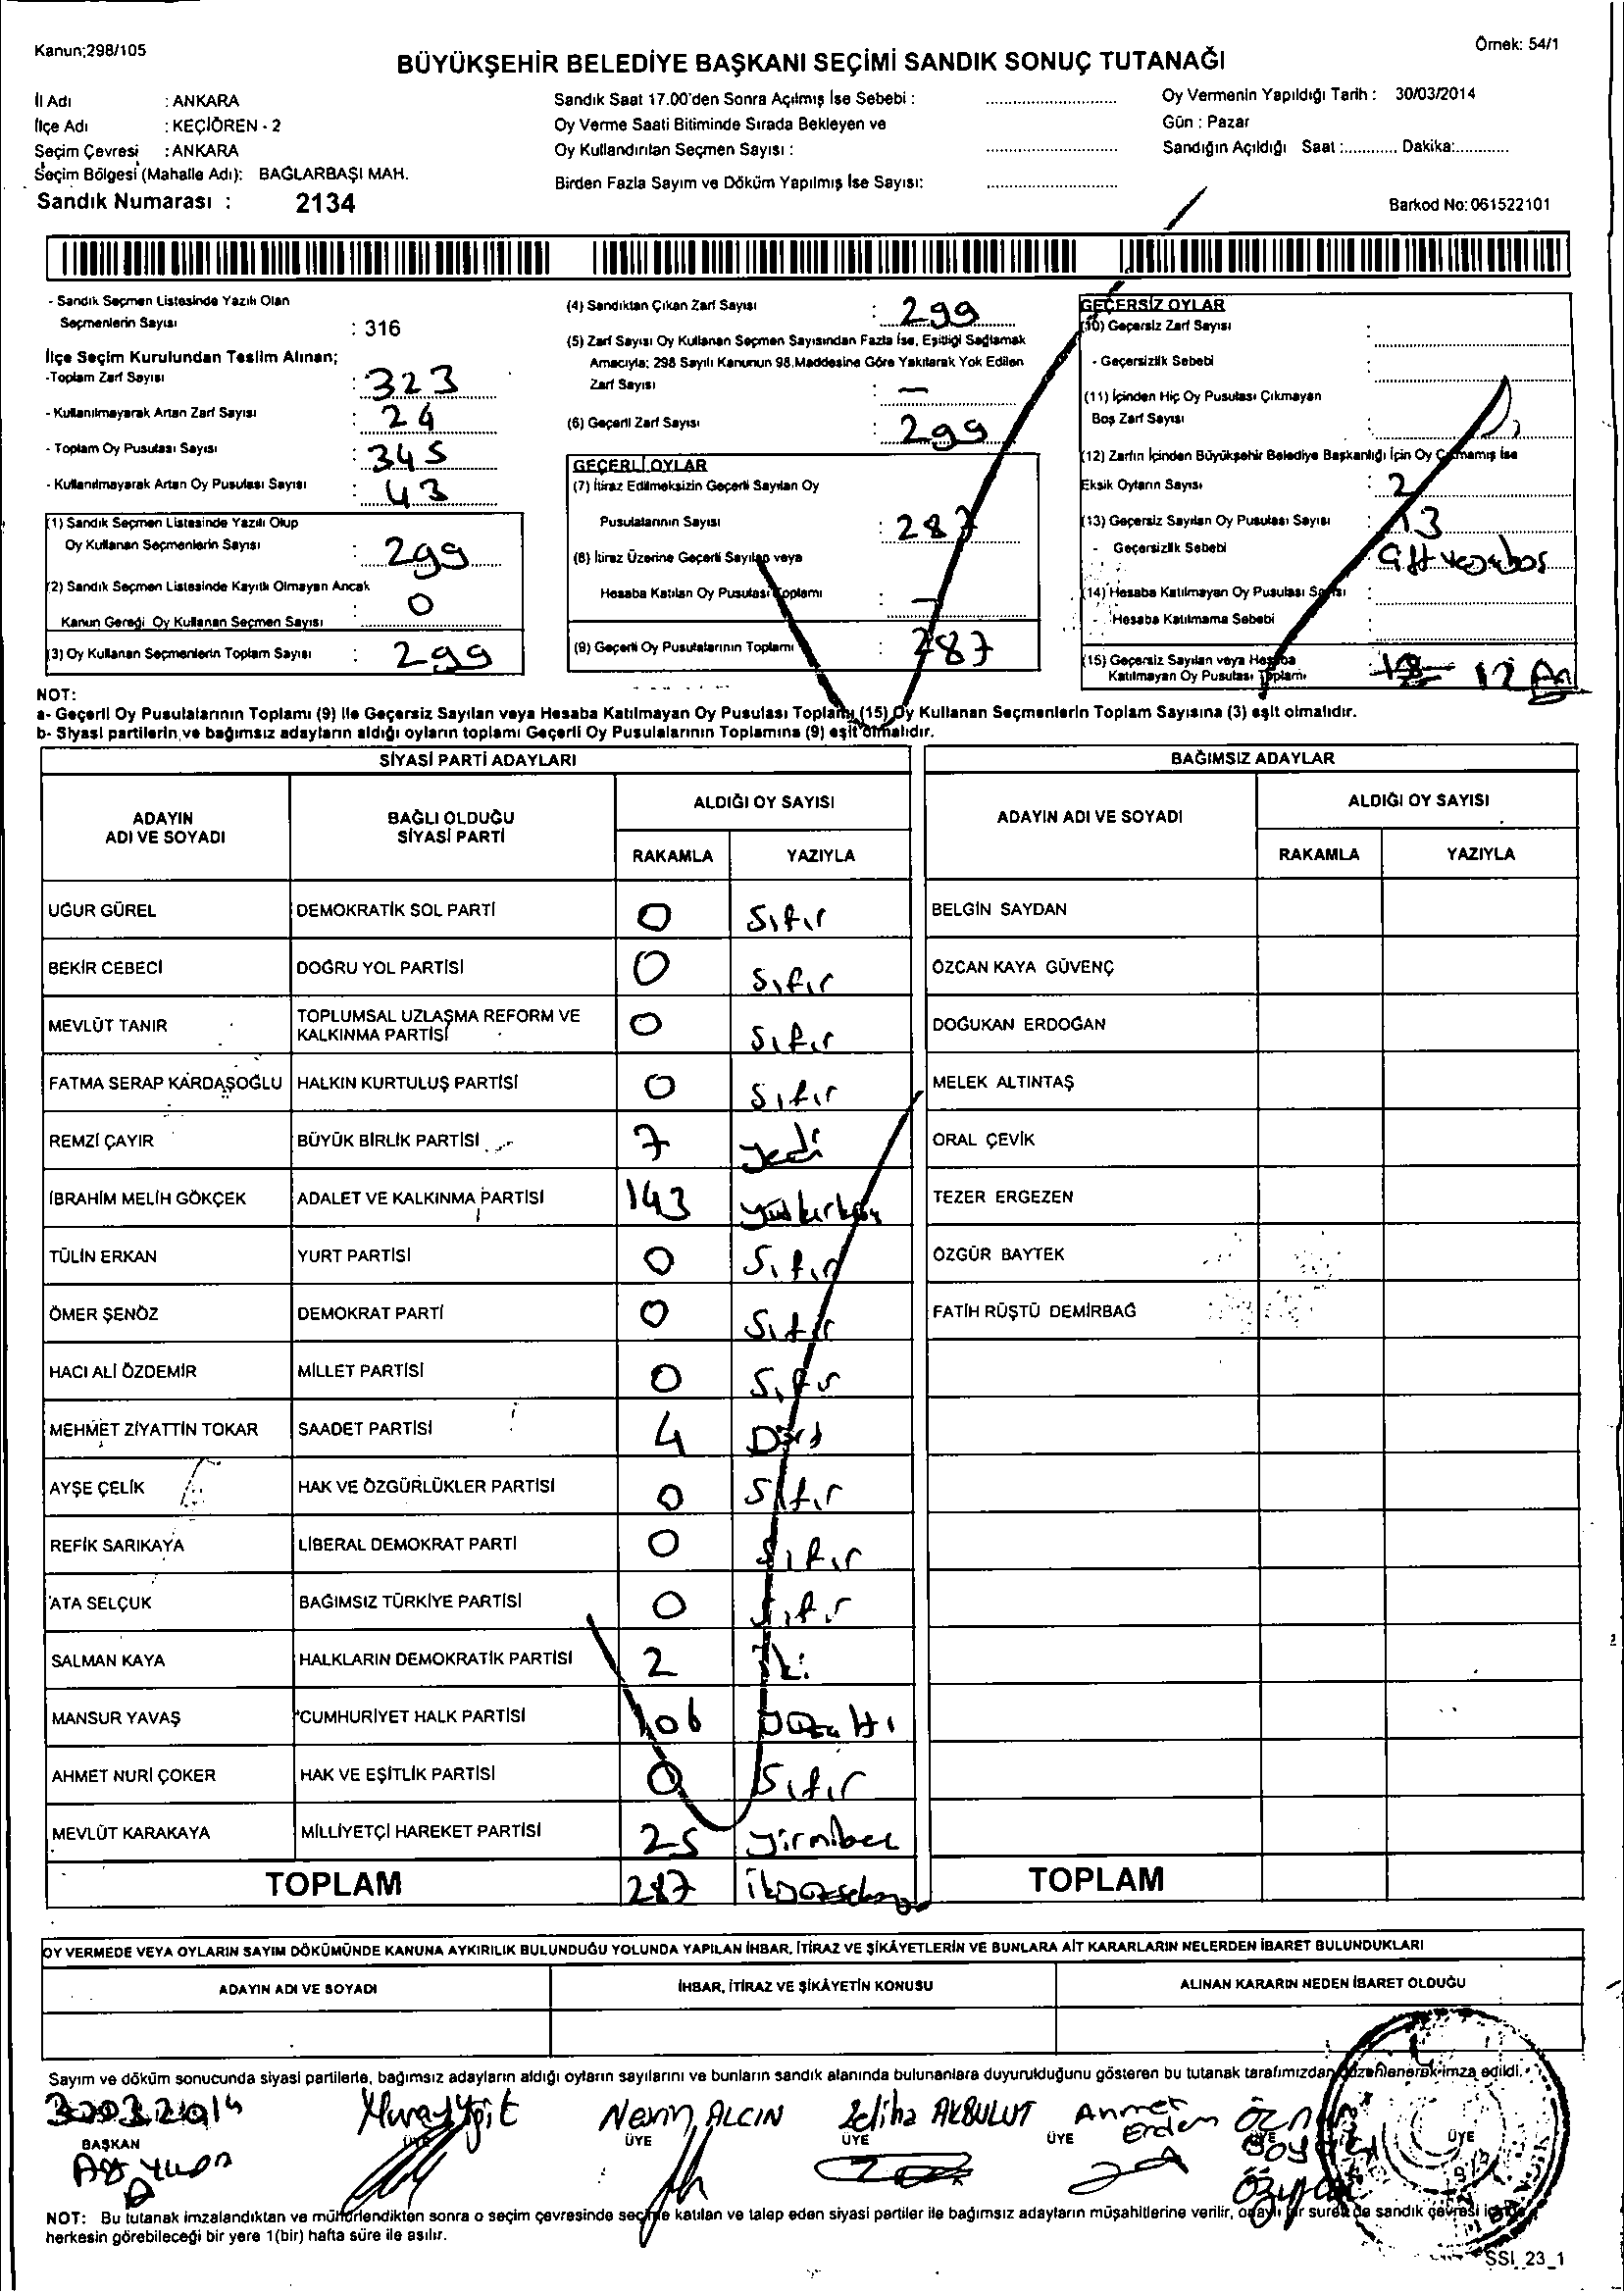 Kanun;298/105
Örnek: 54/1
BÜYÜKŞEHİR BELEDİYE BAŞKANI SEÇİMİ SANDIK SONUÇ TUTANAĞI
İl Adı : ANKARA
İlçe Adı : KEÇİÖREN - 2
Seçim Çevresi : ANKARA
Seçim Bölgesi (Mahalle Adı): BAĞLARBAŞI MAH.
Sandık Numarası : 2134
Sandık Saat 17.00'den Sonra Açılmış İse Sebebi :
Oy Verme Saati Bitiminde Sırada Bekleyen ve
Oy Kullandırılan Seçmen Sayısı :
Birden Fazla Sayım ve Döküm Yapılmış İse Sayısı:
Oy Vermenin Yapıldığı Tarih : 30/03/2014
Gün : Pazar
Sandığın Açıldığı Saat :............ Dakika:............
Barkod No: 061522101
- Sandık Seçmen Listesinde Yazılı Olan
Seçmenlerin Sayısı : 316
İlçe Seçim Kurulundan Teslim Alınan;
-Toplam Zarf Sayısı : 323
- Kullanılmayarak Artan Zarf Sayısı : 24
- Toplam Oy Pusulası Sayısı : 345
- Kullanılmayarak Artan Oy Pusulası Sayısı : 43
(1) Sandık Seçmen Listesinde Yazılı Olup
Oy Kullanan Seçmenlerin Sayısı : 299
(2) Sandık Seçmen Listesinde Kayıtlı Olmayan Ancak
Kanun Gereği Oy Kullanan Seçmen Sayısı : 0
(3) Oy Kullanan Seçmenlerin Toplam Sayısı : 299
(4) Sandıktan Çıkan Zarf Sayısı : 299
(5) Zarf Sayısı Oy Kullanan Seçmen Sayısından Fazla İse, Eşitliği Sağlamak
Amacıyla; 298 Sayılı Kanunun 98.Maddesine Göre Yakılarak Yok Edilen
Zarf Sayısı : —
(6) Geçerli Zarf Sayısı : 299
GEÇERLİ OYLAR
(7) İtiraz Edilmeksizin Geçerli Sayılan Oy
Pusulalarının Sayısı : 287
(8) İtiraz Üzerine Geçerli Sayılan veya
Hesaba Katılan Oy Pusulası Toplamı : —
(9) Geçerli Oy Pusulalarının Toplamı : 287
GEÇERSİZ OYLAR
(10) Geçersiz Zarf Sayısı :
- Geçersizlik Sebebi :
(11) İçinden Hiç Oy Pusulası Çıkmayan
Boş Zarf Sayısı :
(12) Zarfın İçinden Büyükşehir Belediye Başkanlığı İçin Oy Çıkmamış İse
Eksik Oyların Sayısı : 2
(13) Geçersiz Sayılan Oy Pusulası Sayısı : 13
- Geçersizlik Sebebi :
(14) Hesaba Katılmayan Oy Pusulası Sayısı :
- Hesaba Katılmama Sebebi :
(15) Geçersiz Sayılan veya Hesaba
Katılmayan Oy Pusulası Toplamı : 12
NOT:
a- Geçerli Oy Pusulalarının Toplamı (9) ile Geçersiz Sayılan veya Hesaba Katılmayan Oy Pusulası Toplamı (15) Oy Kullanan Seçmenlerin Toplam Sayısına (3) eşit olmalıdır.
b- Siyasi partilerin ve bağımsız adayların aldığı oyların toplamı Geçerli Oy Pusulalarının Toplamına (9) eşit olmalıdır.
SİYASİ PARTİ ADAYLARI
ADAYIN ADI VE SOYADI BAĞLI OLDUĞU SİYASİ PARTİ ALDIĞI OY SAYISI
RAKAMLA YAZIYLA
UĞUR GÜREL DEMOKRATİK SOL PARTİ 0 Sıfır
BEKİR CEBECİ DOĞRU YOL PARTİSİ 0 Sıfır
MEVLÜT TANIR TOPLUMSAL UZLAŞMA REFORM VE KALKINMA PARTİSİ 0 Sıfır
FATMA SERAP KARDAŞOĞLU HALKIN KURTULUŞ PARTİSİ 0 Sıfır
REMZİ ÇAYIR BÜYÜK BİRLİK PARTİSİ 7 yedi
İBRAHİM MELİH GÖKÇEK ADALET VE KALKINMA PARTİSİ 143
TÜLİN ERKAN YURT PARTİSİ 0 Sıfır
ÖMER ŞENÖZ DEMOKRAT PARTİ 0 Sıfır
HACI ALİ ÖZDEMİR MİLLET PARTİSİ 0 Sıfır
MEHMET ZİYATTİN TOKAR SAADET PARTİSİ 4 Dört
AYŞE ÇELİK HAK VE ÖZGÜRLÜKLER PARTİSİ 0 Sıfır
REFİK SARIKAYA LİBERAL DEMOKRAT PARTİ 0 Sıfır
ATA SELÇUK BAĞIMSIZ TÜRKİYE PARTİSİ 0 Sıfır
SALMAN KAYA HALKLARIN DEMOKRATİK PARTİSİ 2 İki
MANSUR YAVAŞ CUMHURİYET HALK PARTİSİ 106 yüzaltı
AHMET NURİ ÇOKER HAK VE EŞİTLİK PARTİSİ 0 Sıfır
MEVLÜT KARAKAYA MİLLİYETÇİ HAREKET PARTİSİ 25 yirmibeş
TOPLAM 287
BAĞIMSIZ ADAYLAR
ADAYIN ADI VE SOYADI ALDIĞI OY SAYISI
RAKAMLA YAZIYLA
BELGİN SAYDAN
ÖZCAN KAYA GÜVENÇ
DOĞUKAN ERDOĞAN
MELEK ALTINTAŞ
ORAL ÇEVİK
TEZER ERGEZEN
ÖZGÜR BAYTEK
FATİH RÜŞTÜ DEMİRBAĞ
TOPLAM
OY VERMEDE VEYA OYLARIN SAYIM DÖKÜMÜNDE KANUNA AYKIRILIK BULUNDUĞU YOLUNDA YAPILAN İHBAR, İTİRAZ VE ŞİKÂYETLERİN VE BUNLARA AİT KARARLARIN NELERDEN İBARET BULUNDUKLARI
ADAYIN ADI VE SOYADI İHBAR, İTİRAZ VE ŞİKÂYETİN KONUSU ALINAN KARARIN NEDEN İBARET OLDUĞU
Sayım ve döküm sonucunda siyasi partilerle, bağımsız adayların aldığı oyların sayılarını ve bunların sandık alanında bulunanlara duyurulduğunu gösteren bu tutanak tarafımızdan düzenlenerek imza edildi.
Nevin ALCIN Zeliha AKBULUT Ahmet Erdem
BAŞKAN ÜYE ÜYE ÜYE ÜYE ÜYE ÜYE
NOT: Bu tutanak imzalandıktan ve mühürlendikten sonra o seçim çevresinde seçime katılan ve talep eden siyasi partiler ile bağımsız adayların müşahitlerine verilir, onaylı bir sureti de sandık çevresi içinde
herkesin görebileceği bir yere 1(bir) hafta süre ile asılır.
SSI_23_1